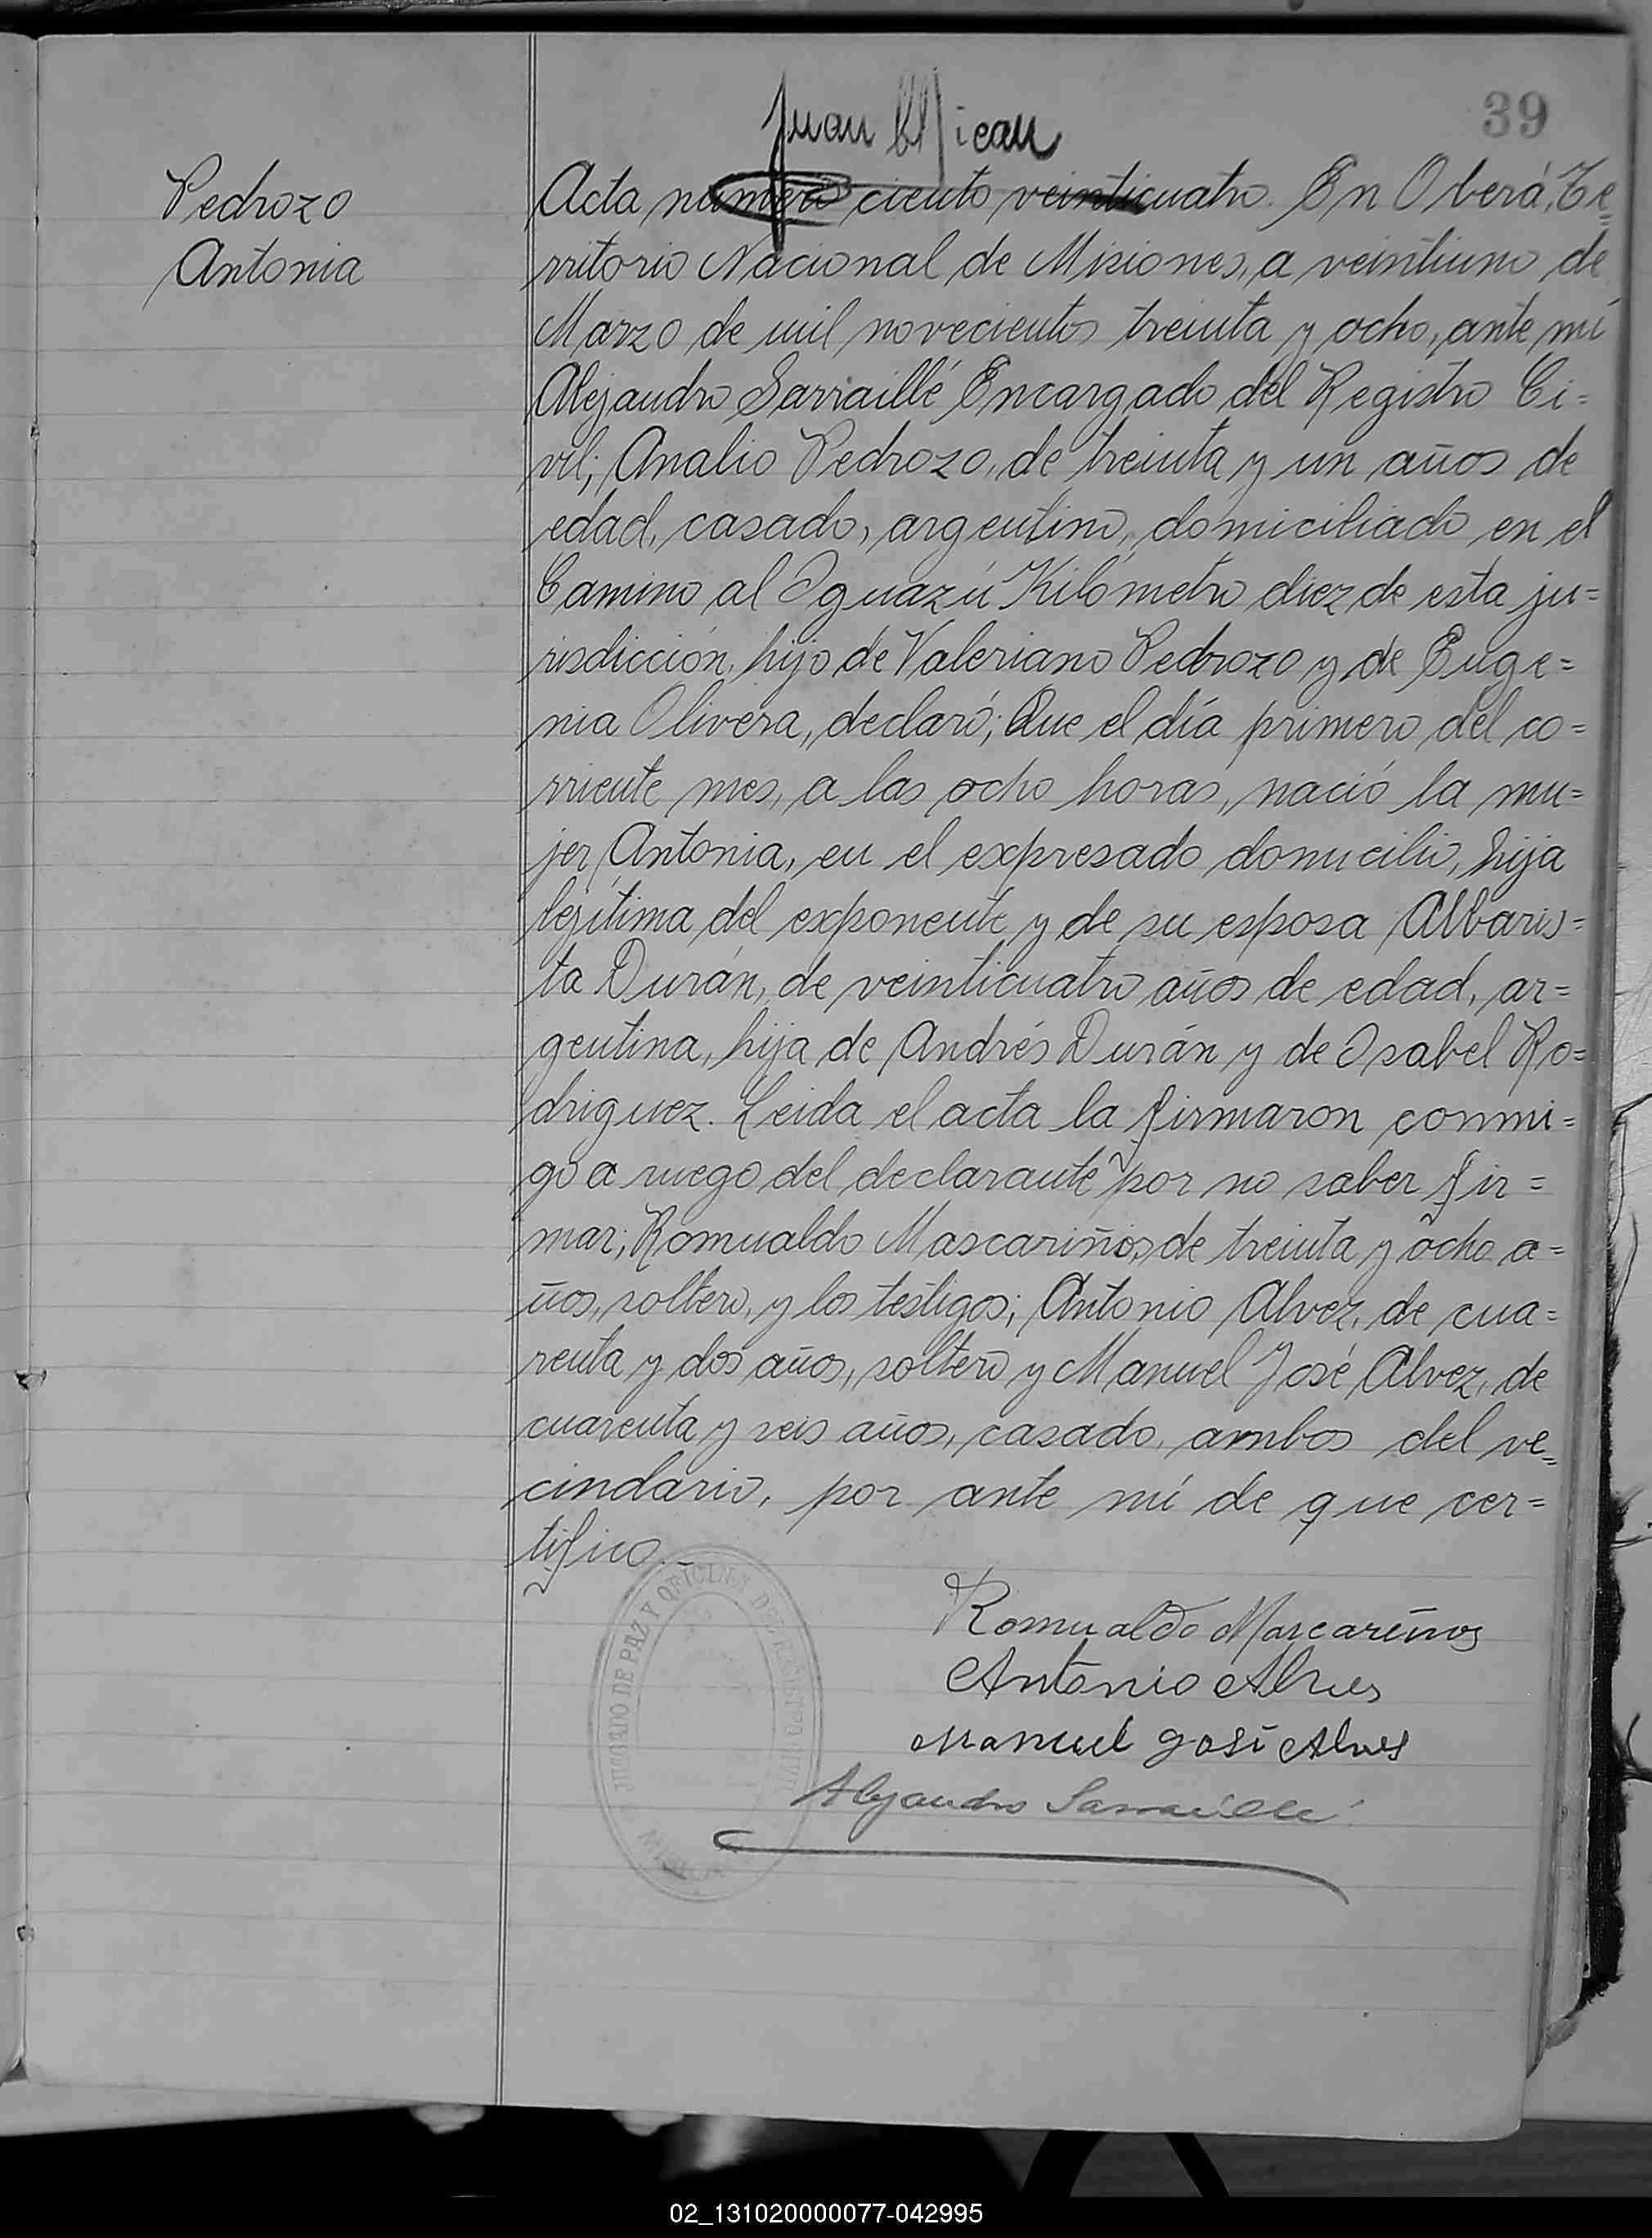 39
Juan
Pedrozo
Antonia
Acta número ciento veinticuatro. En Oberá, Te=
rritorio Nacional de Misiones, a veintiuno de
Marzo de mil novecientos treinta y ocho, ante mí
Alejandro Sarraillé Encargado del Registro Ci=
vil; Analio Pedrozo, de treinta y un años de
edad, casado, argentino, domiciliado en el
Camino al Iguazú Kilómetro diez de esta ju=
risdicción, hijo de Valeriano Pedrozo y de Euge=
nia Olivera, declaró; Que el día primero del co=
rriente mes, a las ocho horas, nació la mu=
jer Antonia, en el expresado domicilio, hija
legítima del exponente y de su esposa Albaris=
ta Durán, de veinticuatro años de edad, ar=
gentina, hija de Andrés Durán y de Isabel Ro=
driguez. Leida el acta la firmaron conmi=
go a ruego del declarante por no saber fir=
mar; Romualdo Mascariños, de treinta y ocho a=
ños, soltero, y los testigos; Antonio Alvez, de cua=
renta y dos años, soltero y Manuel José Alvez, de
cuarenta y seis años, casado, ambos del ve=
cindario, por ante mí de que cer=
tifico.
JUZGADO DE PAZ Y OFICINA DEL REGISTRO CIVIL
Romualdo Mascariños
Antonio Alves
Manuel José Alves
Alejandro Sarraillé
02_131020000077-042995